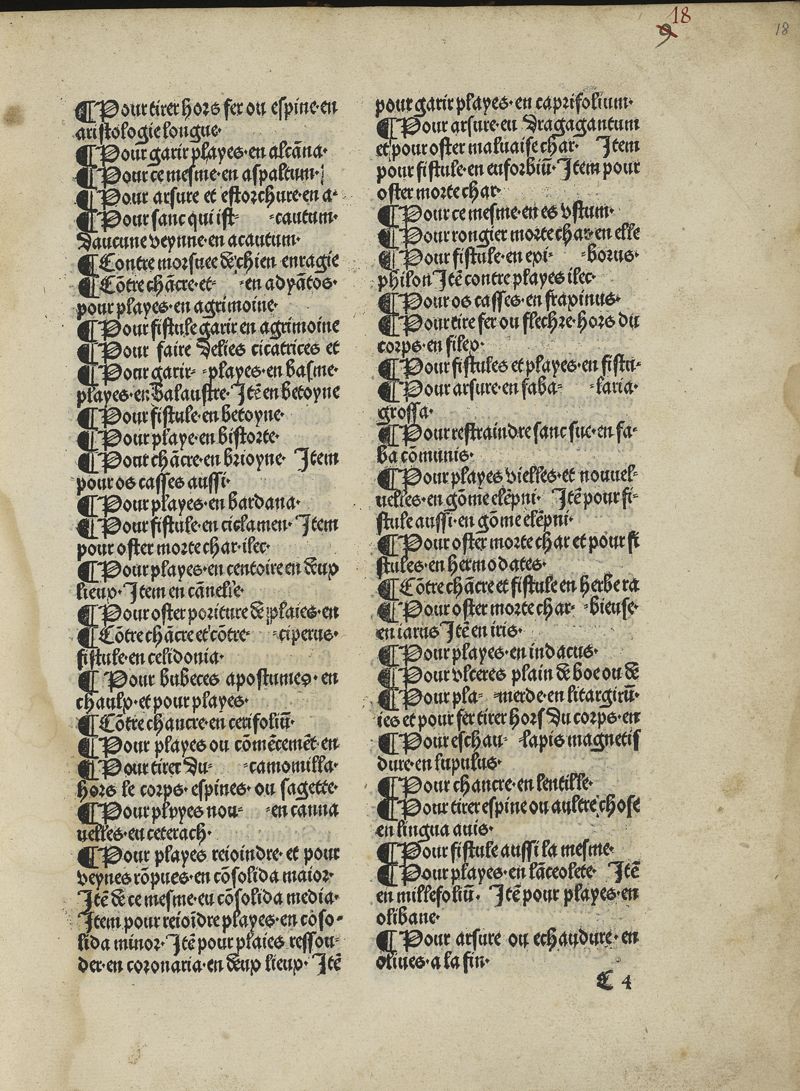 18
9
18
¶ Pour tirer hors fer ou espine·en
aristologie longue·
¶ Pour garir playes·en alcāna·
¶ Pour ce mesme·en aspaltum·
¶ Pour arsure et estorchure·en a-
¶ Pour sanc qui ist- -cautum·
daucune veynne·en acautum·
¶ Contre morsuee de chien enragie
¶ Cōtre chācre·et- -en adyātos·
pour playes·en agrimoine·
¶ Pour fistule garir en agrimoine
¶ Pour faire delies cicatrices et
¶ Pour garir- -playes·en basme·
playes·en balaustre·Itē en betoyne
¶ Pour fistule·en betoyne·
¶ Pour playe·en bistorte·
¶ Pour chācre·en brioyne· Item
pour os casses aussi·
¶ Pour playes·en bardana·
¶ Pour fistule·en ciclamen· Item
pour oster morte char·ilec·
¶ Pour playes·en centoire en deux
lieux·Item en cānelle·
¶ Pour oster poriture de plaies·en
¶ Cōtre chācre et cōtre- -ciperus·
fistule·en celidonia·
¶ Pour bubeces apostumes·en
chaulx·et pour playes·
¶ Cōtre chancre·en cerifoliū·
¶ Pour playes ou cōmēcemēt·en
¶ Pour tirer du- -camomilla·
hors le corps·espines·ou sagette·
¶ Pour playes nou- -en canna
uelles·en ceterach·
¶ Pour playes reioindre·et pour
veynes rōpues·en cōsolida maior·
Itē de ce mesme·en cōsolida media·
Item pour reioīdre playes·en cōso-
lida minor·Itē pour plaies ressou-
der·en coronaria·en deux lieux· Itē
pour garir playes·en caprifolium·
¶ Pour arsure·en dragagantum
et pour oster maluaise char· Item
pour fistule·en euforbiū·Item pour
oster morte char·
¶ Pour ce mesme·en es vstum·
¶ Pour rongier morte char·en elle
¶ Pour fistule·en epi- -borus·
philon Itē contre playes ilec·
¶ Pour os casses·en fraxinus·
¶ Pour tire fer ou flechze·hors du
corps·en filex·
¶ Pour fistules et playes·en fistu-
¶ Pour arsure·en faba- -laria·
grossa·
¶ Pour restraindre sanc suc·en fa-
ba cōmunis·
¶ Pour playes vielles·et nouuel-
uelles·en gōme elēpni· Itē pour fi-
stule aussi·en gōme elēpni·
¶ Pour oster morte char et pour fi
stules·en hermodates·
¶ Cōtre chācre et fistule en herbe ra
¶ Pour oster morte char- -bieuse·
en iarus Itē en iris·
¶ Pour playes·en indacus·
¶ Pour vlceres plain de boe ou de
¶ Pour pla- -merde·en litargirū·
ies et pour fer tirer hors du corps·en
¶ Pour eschau- -lapis magnetis
dure·en lupulus·
¶ Pour chancre·en lentille·
¶ Pour tirer espine ou aultre chose
en lingua auis·
¶ Pour fistule aussi la mesme·
¶ Pour playes·en lāceolete· Itē
en millefoliū· Itē pour playes·en
olibane·
¶ Pour arsure ou echaudure·en
oliues·a la fin·
C 4